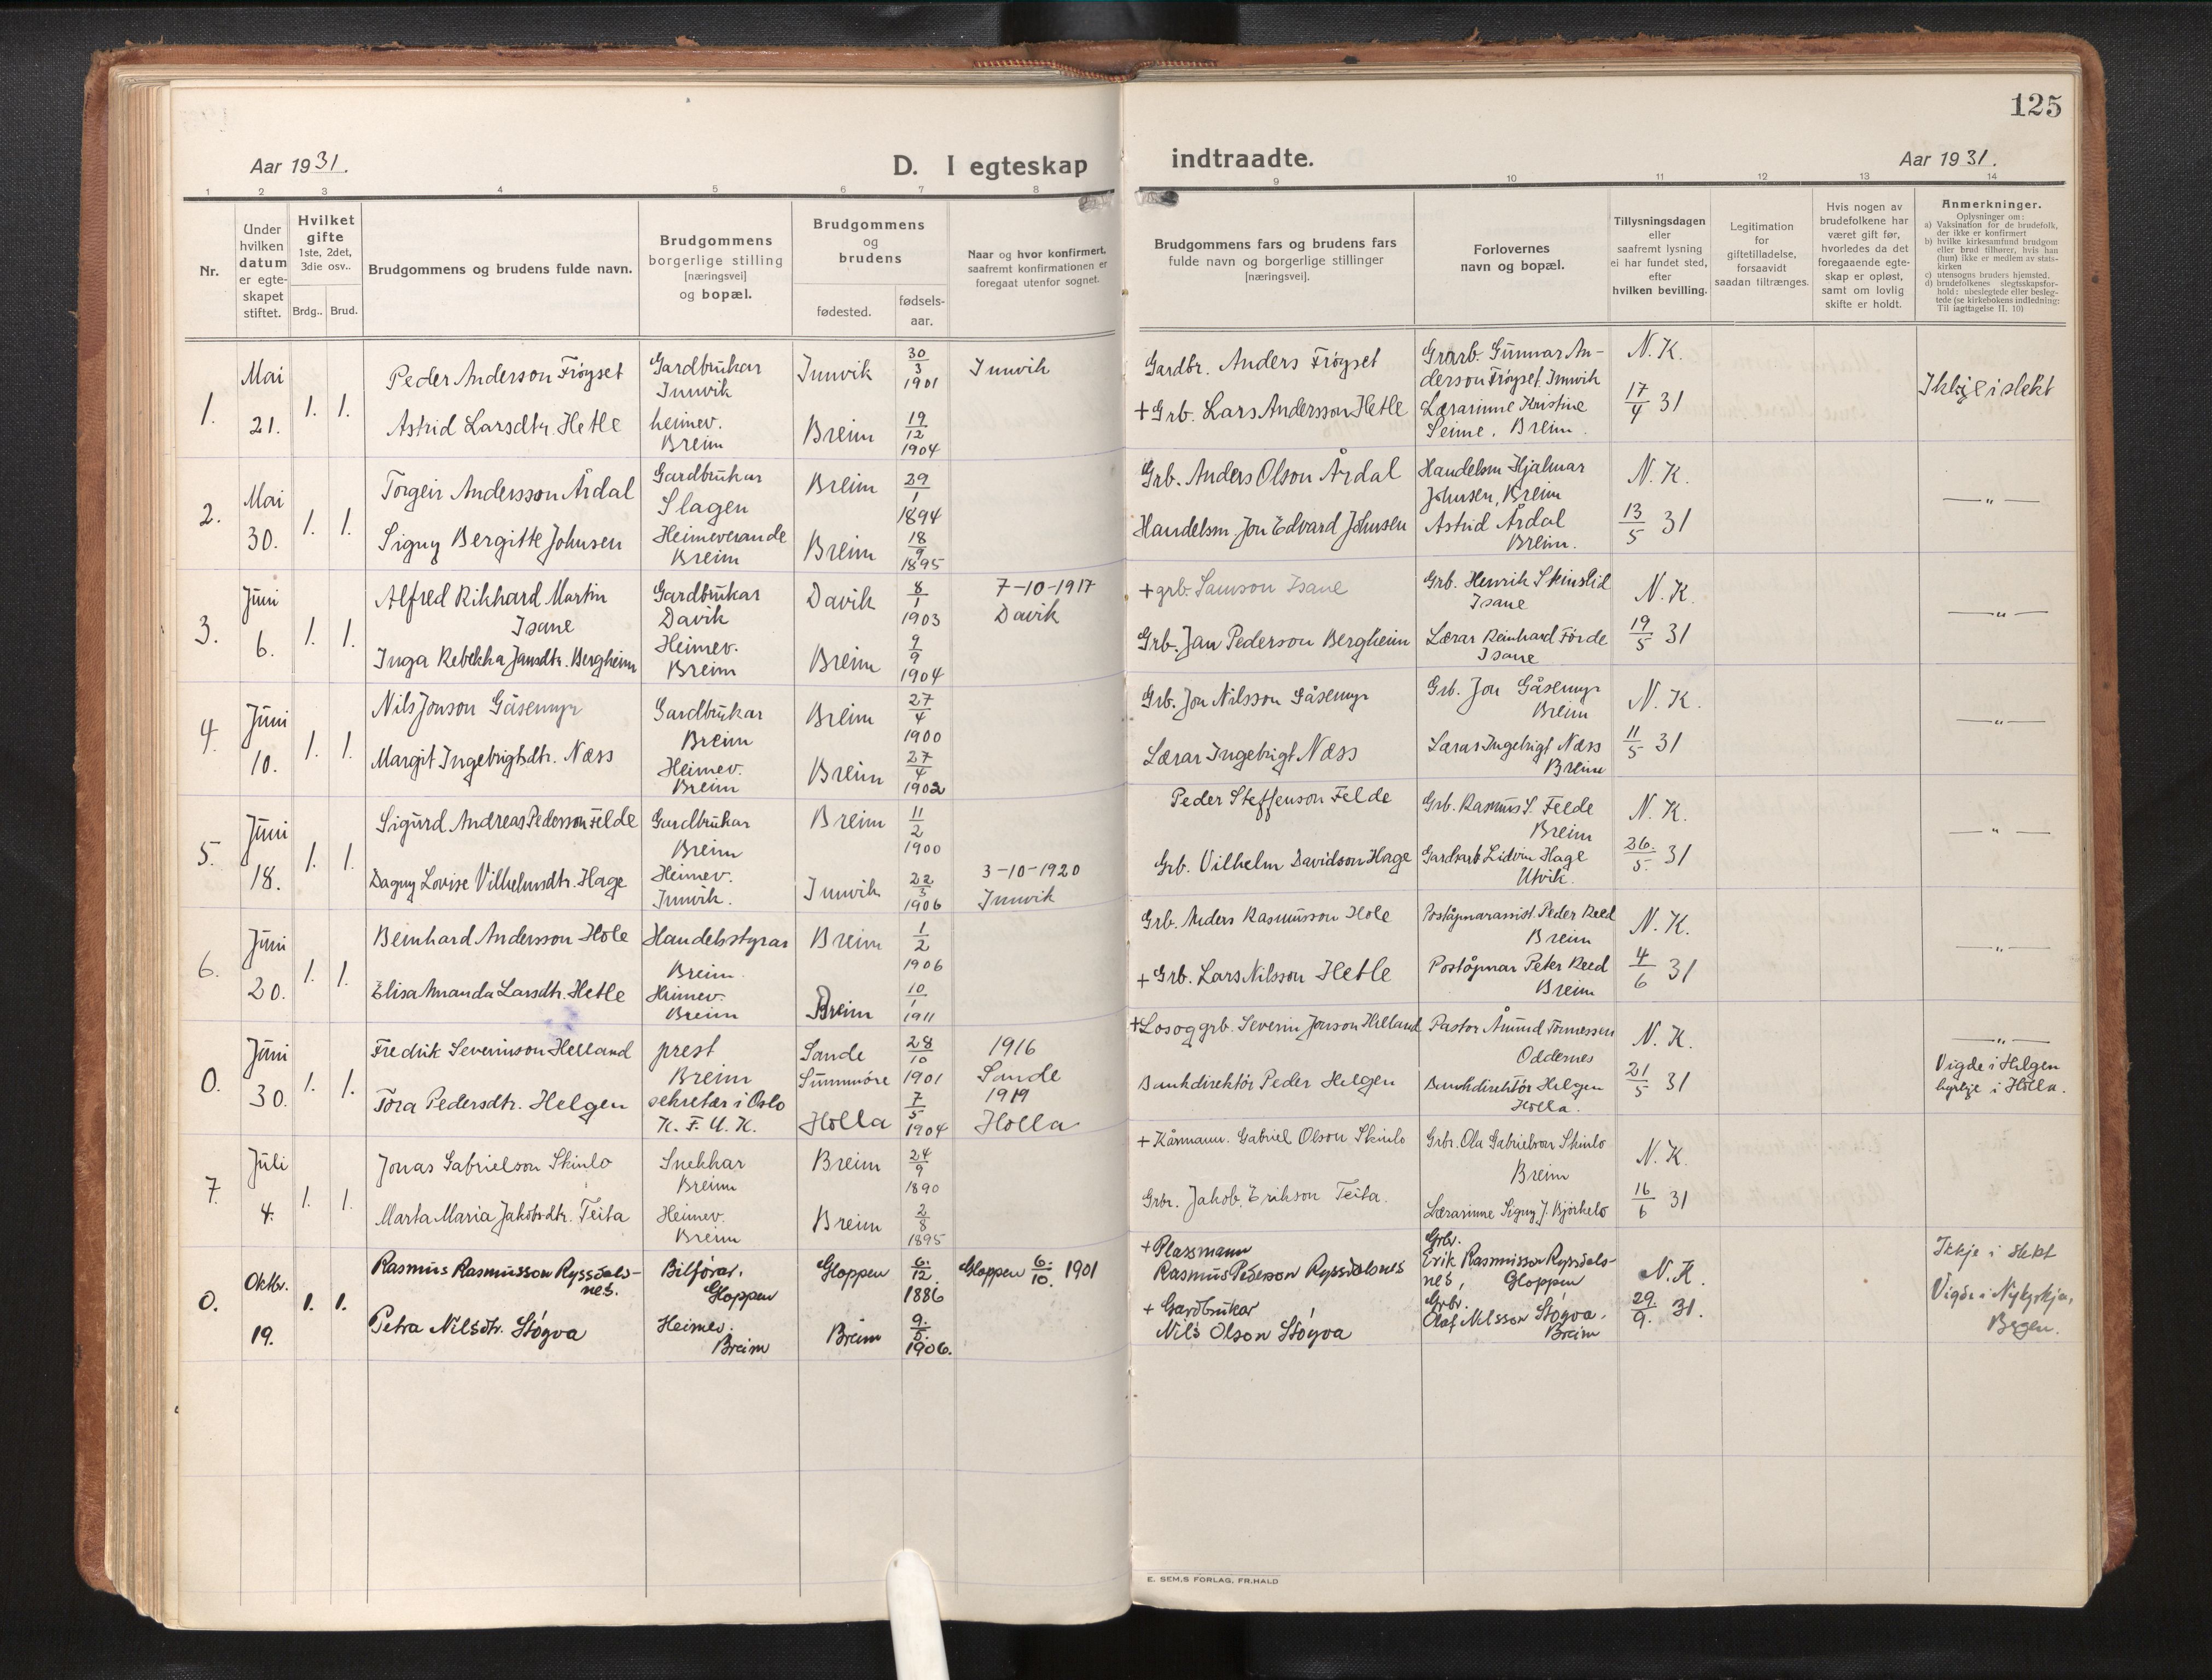 125
Aar 1931.
D. I egteskap indtraadte.
Aar 1931.
1 2 3 4 5 6 7 8 9 10 11 12 13 14
Nr.
Under
hvilken
datum
er egte-
skapet
stiftet.
Hvilket
gifte
1ste, 2det,
3die osv..
Brdg.. Brud.
Brudgommens og brudens fulde navn.
Brudgommens
borgerlige stilling
[næringsvei]
og bopæl.
Brudgommens
og
brudens
fødested.
fødsels-
aar.
Naar og hvor konfirmert,
saafremt konfirmationen er
foregaat utenfor sognet.
Brudgommens fars og brudens fars
fulde navn og borgerlige stillinger
[næringsvei].
Forlovernes
navn og bopæl.
Tillysningsdagen
eller
saafremt lysning
ei har fundet sted,
efter
hvilken bevilling.
Legitimation
for
giftetilladelse,
forsaavidt
saadan tiltrænges.
Hvis nogen av
brudefolkene har
været gift før,
hvorledes da det
foregaaende egte-
skap er opløst,
samt om lovlig
skifte er holdt.
Anmerkninger.
Oplysninger om:
a) Vaksination for de brudefolk,
der ikke er konfirmert
b) hvilke kirkesamfund brudgom
eller brud tilhører, hvis han
(hun) ikke er medlem av stats-
kirken
c) utensogns bruders hjemsted.
d) brudefolkenes slegtsskapsfor-
hold: ubeslegtede eller besleg-
tede (se kirkebokens indledning:
Til iagttagelse II. 10)
1.
Mai
21.
1. 1.
Peder Anderson Frøyset
Astrid Larsdtr. Hetle
Gardbrukar
Innvik
heimev.
Breim
Innvik
Breim
30/3
1901
19/12
1904
Innvik
Gardbr. Anders Frøyset
+ Grb. Lars Andersson Hetle
Gardb. Gunnar An-
derson Frøyset. Innvik
Lærarinne Kristine
Seime. Breim.
N. K.
17/4 31
Ikkje i slekt
2.
Mai
30.
1. 1.
Torgeir Andersson Årdal
Signy Bergitte Johnsen
Gardbrukar
Slagen
Heimeverande
Breim
Breim
Breim
29/1
1894
18/9
1895
Grb. Anders Olson Årdal
Handelsm. Jon Edvard Johnsen
Handelsm Hjalmar
Johnsen, Breim
Astrid Årdal
Breim.
N. K.
13/5 31
—„—
3.
Juni
6.
1. 1.
Alfred Rikhard Martin
Isane
Inga Rebekka Jansdtr. Bergheim
Gardbrukar
Davik
Heimev.
Breim
Davik
Breim
8/1
1903
9/9
1904
7-10-1917
Davik
+ grb. Samson Isane
Grb. Jan Pederson Bergheim
Grb. Henrik Skinslid
Isane
Lærar Reinhard Förde
Isane
N. K.
19/5 31
—„—
4.
Juni
10.
1. 1.
Nils Jonson Gåsemyr
Margit Ingebrigtsdtr. Næss
Gardbrukar
Breim
Heimev.
Breim
Breim
Breim
27/4
1900
27/4
1902
Grb. Jon Nilsson Gåsemyr
Lærar Ingebrigt Næss
Grb. Jon Gåsemyr
Breim
Lærar Ingebrigt Næss
Breim
N. K.
11/5 31
—„—
5.
Juni
18.
1. 1.
Sigurd Andreas Pedersson Felde
Dagny Lovise Vilhelmsdtr. Hage
Gardbrukar
Breim
Heimev.
Innvik.
Breim
Innvik
11/2
1900
22/3
1906
3-10-1920
Innvik
Peder Steffenson Felde
Grb. Vilhelm Davidson Hage
Grb. Rasmus S. Felde
Breim
Gardsarb Lidvin Hage
Utvik.
N. K.
26./5. 31
—„—
6.
Juni
20.
1. 1.
Beinhard Andersson Hole
Elisa Amanda Larsdtr. Hetle
Handelsstyrar
Breim.
Heimev.
Breim
Breim
Breim
1/2
1906
10/1
1911
Grb. Anders Rasmusson Hole
+ Grb. Lars Nilsson Hetle
Poståpnarassist. Peder Reed
Breim
Poståpnar Peter Reed
Breim
N. K.
4/6 31
—„—
0.
Juni
30.
1. 1.
Fredrik Severinson Helland
Tora Pedersdtr. Helgen
prest
Breim
sekretær i Oslo
K. F. U. K.
Sande
Sunnmöre
Holla
28/10
1901
7/5
1904
1916
Sande
1919
Holla
+ Losoggrb. Severin Jonson Helland
Bankdirektör Peder Helgen
Pastor Åmund Tonnessen
Oddernes
Bankdirektör Helgen
Holla.
N. K.
21/5 31
—„—
Vigde i Helgen
kyrkje i Holla.
7.
Juli
4.
1. 1.
Jonas Gabrielson Skinlo
Marta Maria Jakobsdtr. Teita
Snekkar
Breim
Heimev.
Breim
Breim
Breim
24/9
1890
2/8
1895
+ Kårmann. Gabriel Olson Skinlo
Grbr. Jakob Erikson Teita.
Grbr. Ola Gabrielson Skinlo
Breim
Lærarinne Signy J. Bjørkelo
N. K.
16/6 31
0.
Oktbr.
19.
1. 1.
Rasmus Rasmusson Ryssdals-
nes.
Petra Nilsdtr. Støyva
Bilførar,
Gloppen
Heimev.
Breim
Gloppen
Breim
6./12.
1886
9./5.
1906.
Gloppen 6./10. 1901
+ Plassmann
Rasmus Pederson Ryssdalsnes
+ Gardbrukar
Nils Olson Støyva
Grbr.
Erik Rasmusson Ryssdals-
nes, Gloppen
Grbr.
Olaf Nilsson Støyva.
Breim
N. K.
29./9. 31.
Ikkje i slekt
Vigde i Nykyrkja,
Bergen.
E. SEM,S FORLAG, FR.HALD